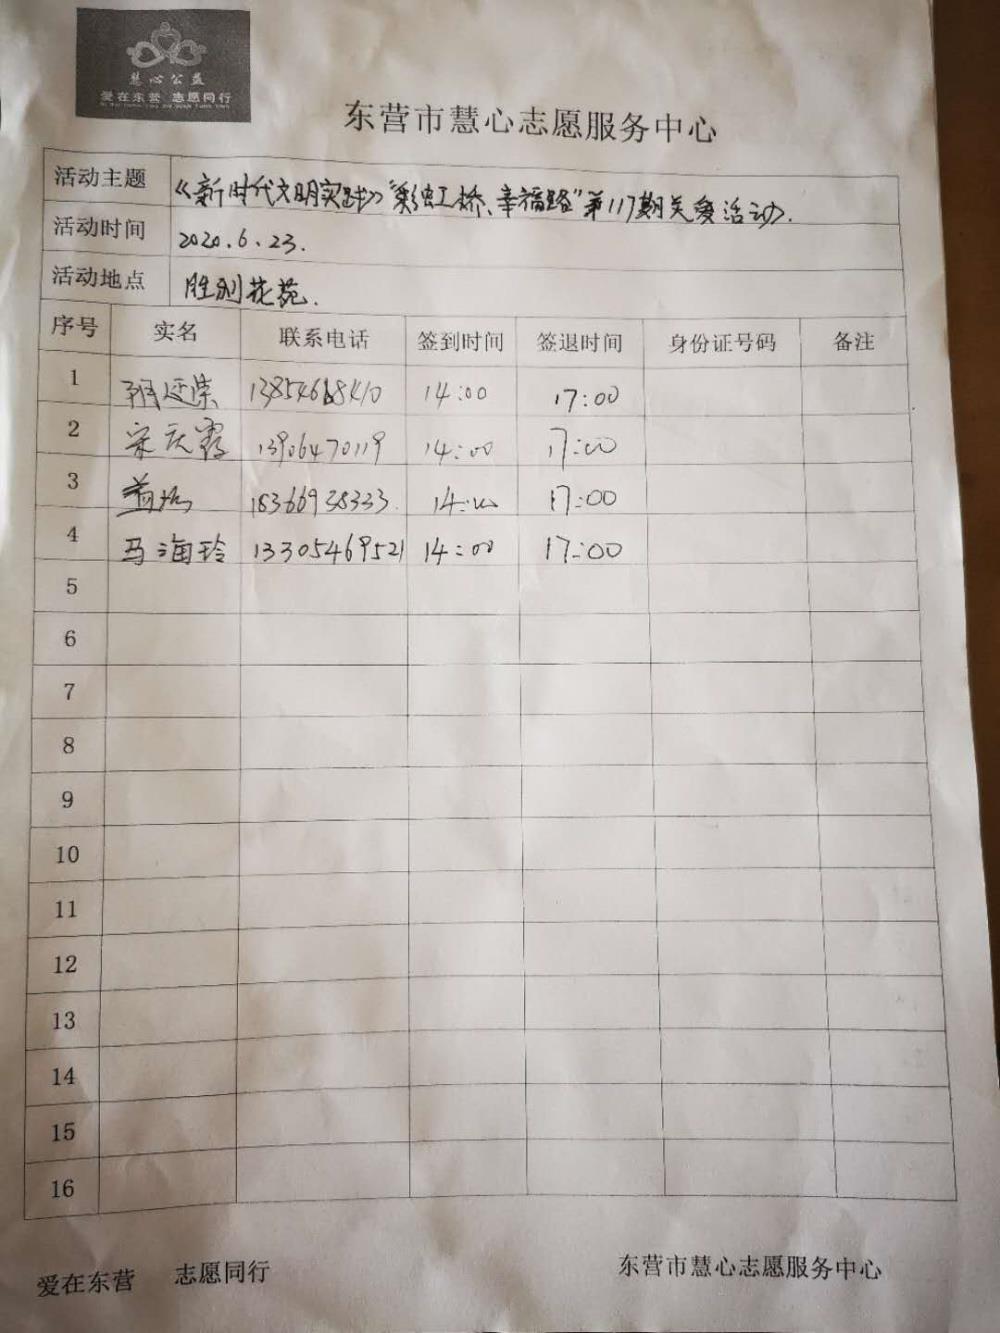 慧心公益
爱在东营 志愿同行
东营市慧心志愿服务中心
活动主题 《新时代文明实践》"彩虹桥、幸福路"第117期关爱活动.
活动时间 2020.6.23.
活动地点 胜利花苑.
序号 实名 联系电话 签到时间 签退时间 身份证号码 备注
1 14:00 17:00
2 宋庆霞 13906470119 14:00 17:00
3 18366938333 14:00 17:00
4 马海玲 13305469521 14:00 17:00
5
6
7
8
9
10
11
12
13
14
15
16
爱在东营 志愿同行 东营市慧心志愿服务中心